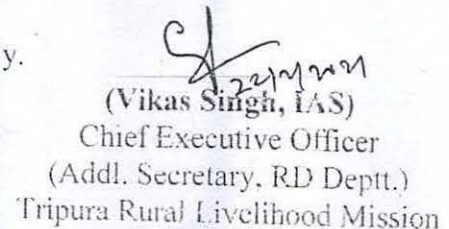 y.
(Vikas Singh, IAS)
Chief Executive Officer
(Addl. Secretary, RD Deptt.)
Tripura Rural Livelihood Mission